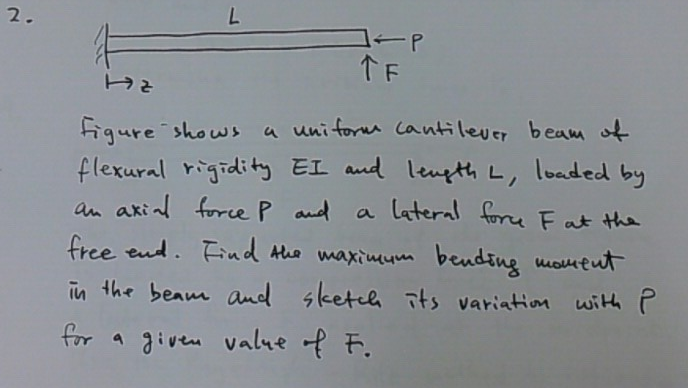 2.
L
P
F
z
Figure shows a uniform cantilever beam of
flexural rigidity EI and length L, loaded by
an axial force P and a lateral force F at the
free end. Find the maximum bending moment
in the beam and sketch its variation with P
for a given value of F.